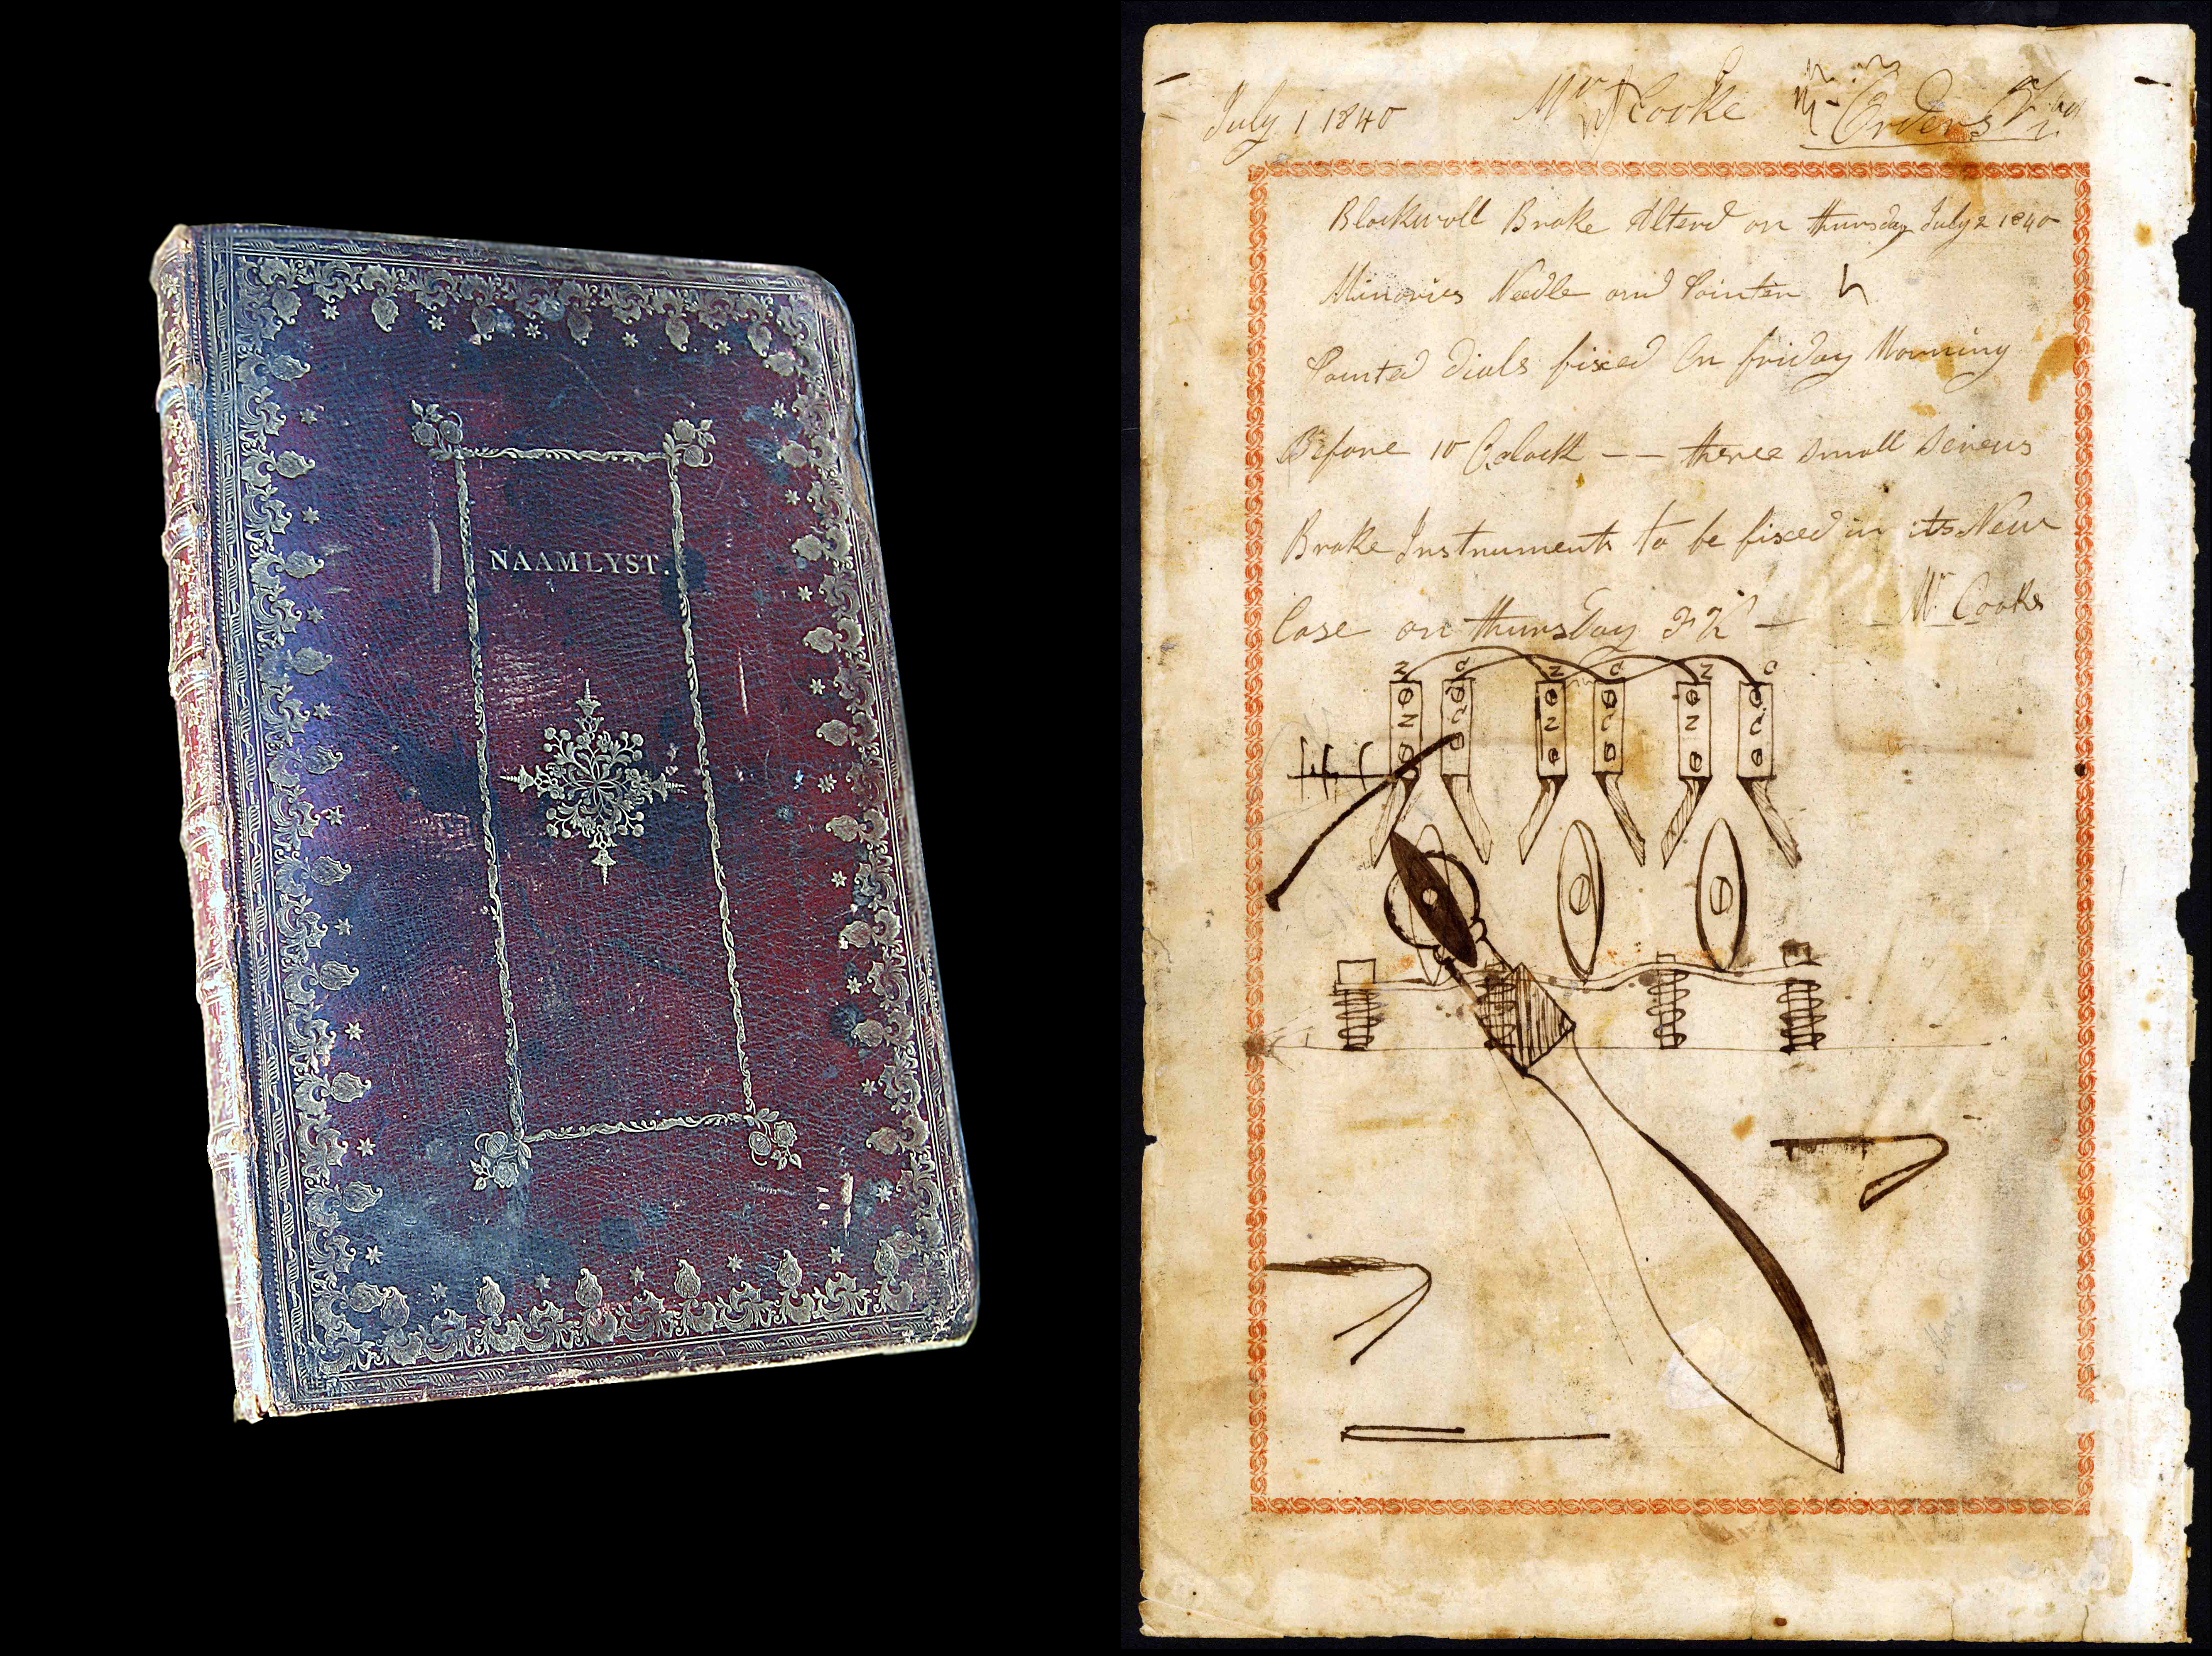 NAAMLYST.
July 1 1840 Mr Cooke Orders
Blackwall Brake Alterd on thursday July 2 1840
Minories Needle and Pointer
Painted Dials fixed On friday Morning
Before 10 Oclock -- three small screws
Brake Instruments to be fixed in its New
Case on thursday — Mr Cooke
Z C Z C Z C
Z C Z C Z C